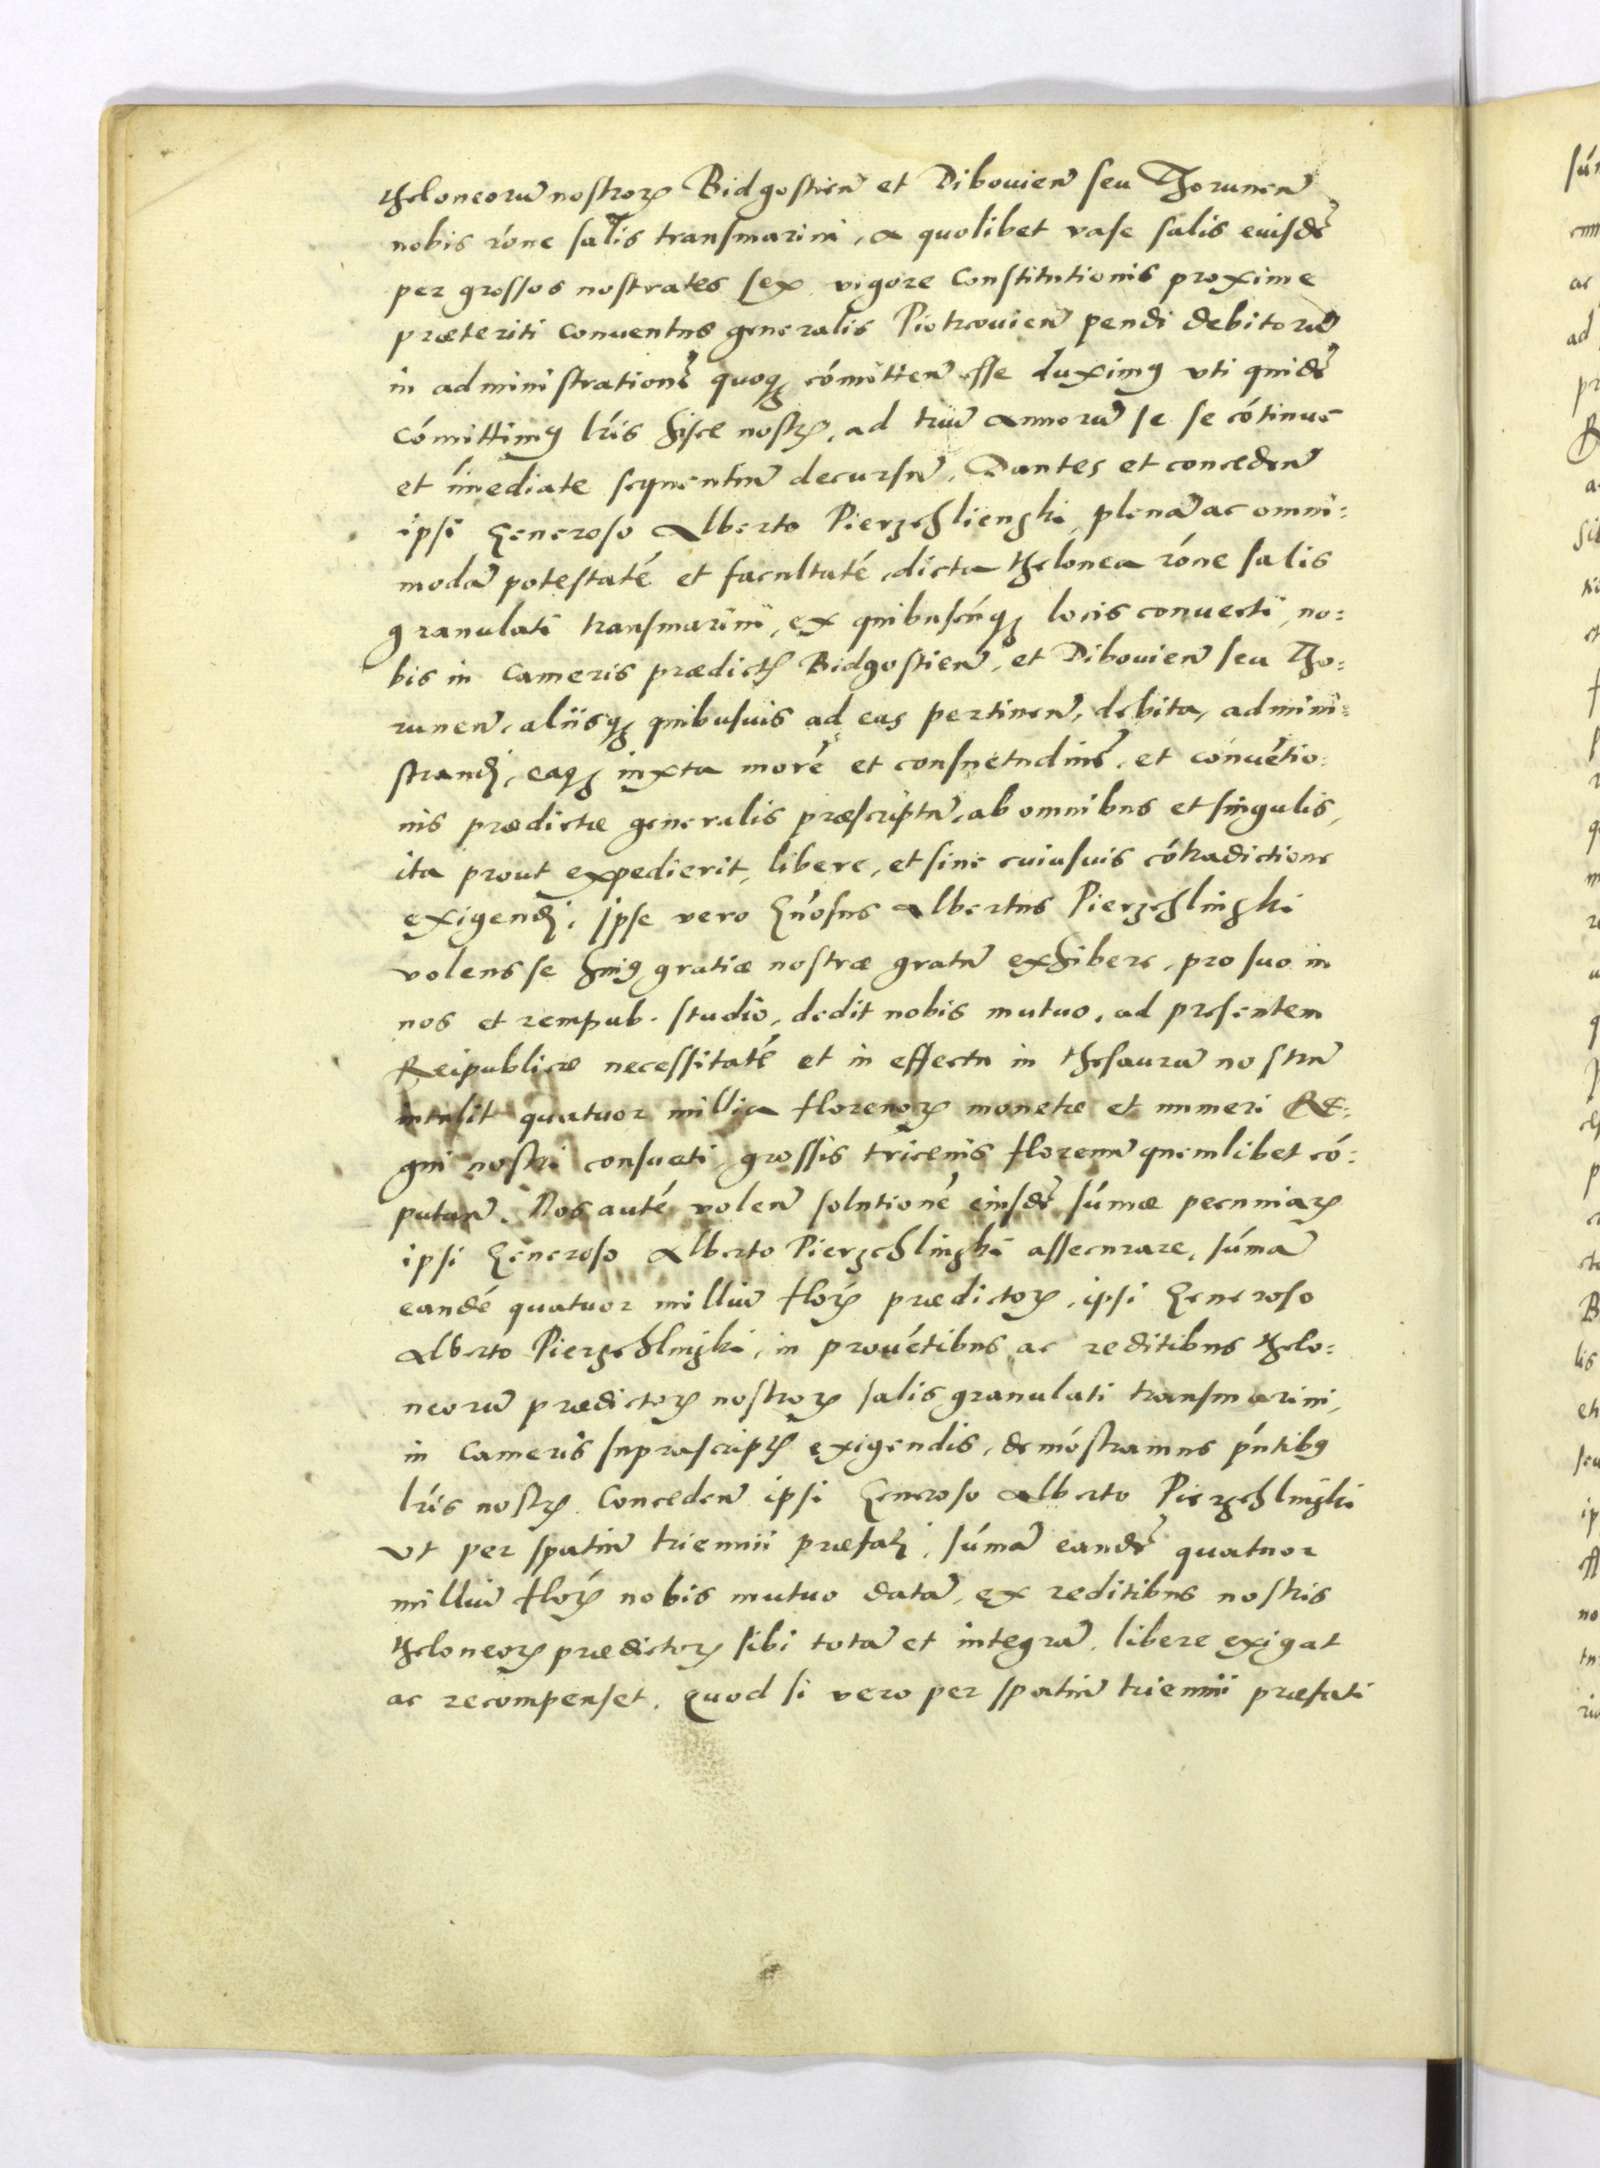 theloneorũ nostrorꝝ Bidgostien̄ et Dibouien̄ seu Thorunen̄
nobis rōne salis transmarini, a quolibet vase salis eiusdē
per grossos nostrates sex vigore Constitutionis proxime
præteriti conuentus generalis Piotrcouien̄ pendi debitorũ
in administrationē quoqꝫ cōmitten̄ esse duximꝰ vti quidē
cōmittimꝰ lris hisce nostrꝭ, ad triũ annorũ se se cōtinue
et īmediate sequentiũ decursũ, Dantes et conceden̄
ipsi Generoso Alberto Pierzchlienski, plenā ac omni=
modā potestatē et facultatē, dicta thelonea rōne salis
granulati transmarini, ex quibuscũqꝫ locis conuecti, no=
bis in Cameris prædictꝭ Bidgostien̄, et Dibouien̄ seu Tho=
runen̄, aliisqꝫ quibusuis ad eas pertinen̄, debita, admini=
strandj, eaqꝫ iuxta morē et consuetudinē, et conuētio=
nis prædictæ generalis præscriptũ, ab omnibus et singulis,
ita prout expedierit, libere, et sine cuiusuis cōtradictione
exigendj. Ipse vero Gn̄osus Albertus Pierzchlinski
volens se huiꝰ gratiæ nostræ gratũ exhibere, pro suo in
nos et rempub. studio, dedit nobis mutuo, ad presentem
Reipublicæ necessitatē et in effectu in thesaurũ nostrũ
intulit quatuor millia florenorꝝ monetæ et numeri Re=
gni nostri consueti, grossis tricenis florenũ quemlibet cō=
putan̄. Nos autē volen̄ solutionē eiusdē sũmæ pecuniarꝝ
ipsi Generoso Alberto Pierzchlinski assecurare, sũmā
eandē quatuor milliũ florꝝ prædictorꝝ, ipsi Generoso
Alberto Pierzchlinski, in prouētibus ac reditibus thelo=
neorũ prædictorꝝ nostrorꝝ salis granulati transmarini,
in Cameris suprascriptꝭ exigendis, demōstramus p̄ntibꝰ
lris nostrꝭ Conceden̄ ipsi Generoso Alberto Pierzchlinski
vt per spatiũ triennii præfatj, sũmā eandē quatuor
milliũ florꝝ nobis mutuo datā, ex reditibus nostris
theloneorꝝ prædictorꝝ sibi totā et integrā, libere exigat
ac recompenset. Quod si vero per spatiũ triennii præfati